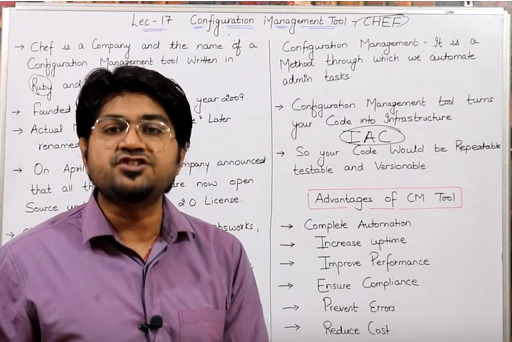 Lec-17 Configuration Management Tool (CHEF)
→ Chef is a Company and the name of a
Configuration Management tool written in
Ruby and
→ Founded year 2009.
→ Actual Later
renamed
→ On April Company announced
that all are now open
Source 2.0 License.
Configuration Management - It is a
Method through which we automate
admin tasks.
→ Configuration Management tool turns
your Code into Infrastructure
IAC
→ So your Code Would be Repeatable
testable and Versionable
Advantages of CM Tool
→ Complete Automation
→ Increase uptime
→ Improve Performance
→ Ensure Compliance
→ Prevent Errors
→ Reduce Cost